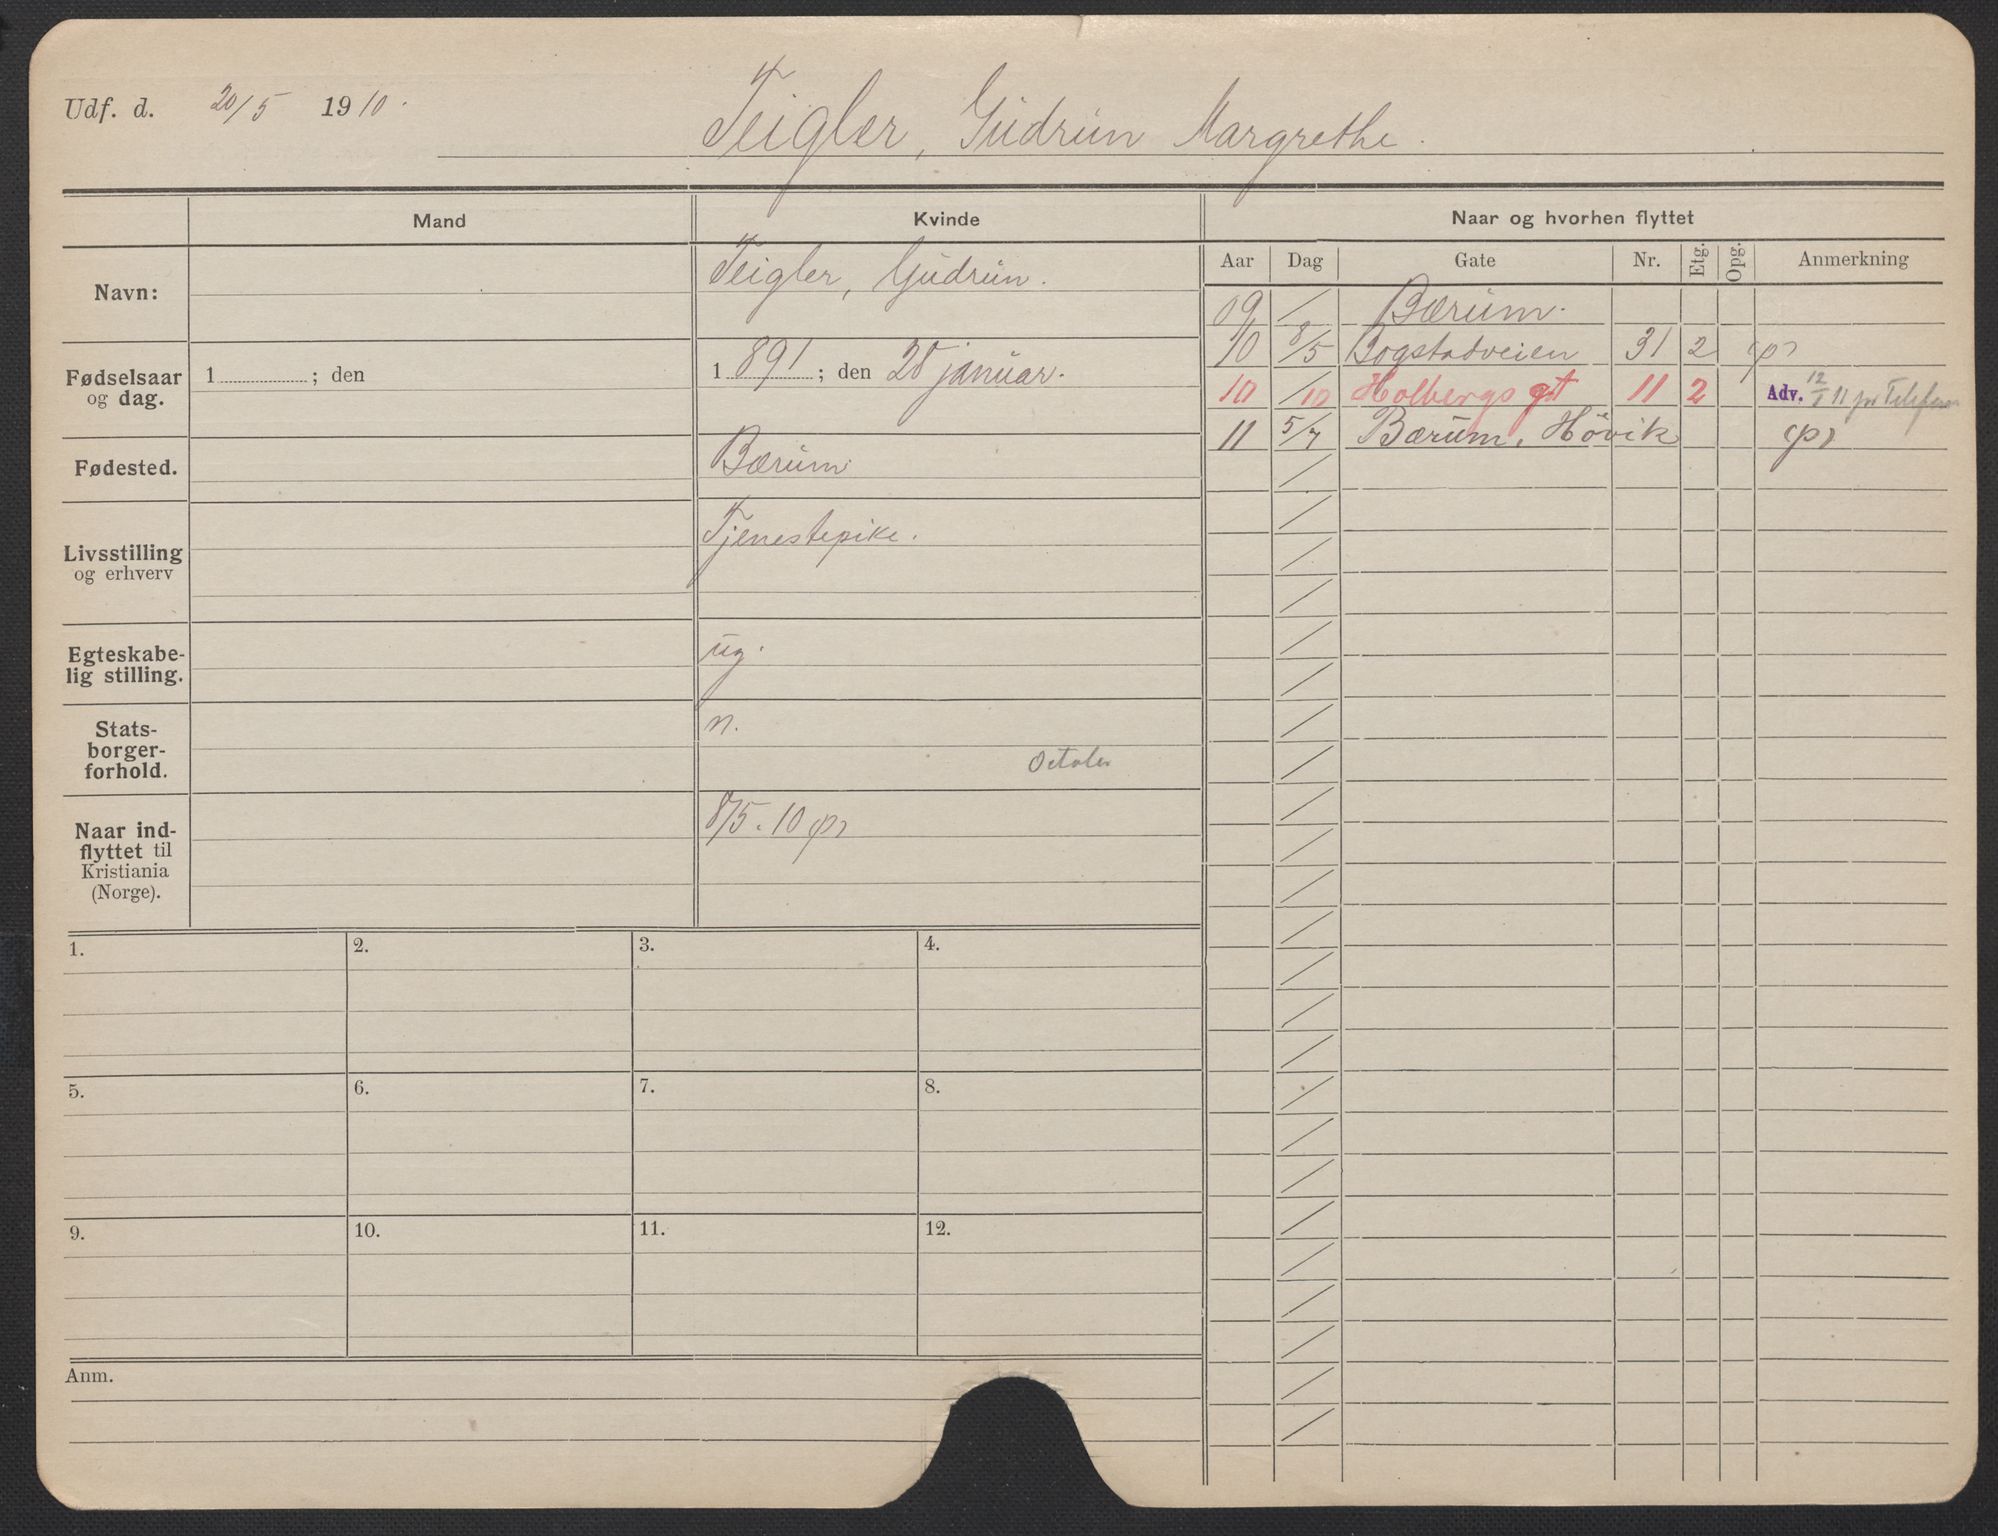 Udf. d. 20/5 1910.
Teigler, Gudrun Margrethe.
Mand
Kvinde
Naar og hvorhen flyttet
Aar Dag Gate Nr. Etg. Opg. Anmerkning
Navn:
Teigler, Gudrun.
Fødselsaar og dag.
1 ; den
1 891 ; den 28 januar.
Fødested.
Bærum
Livsstilling og erhverv
Tjenestepike.
Egteskabe-
lig stilling.
ug.
Stats-
borger-
forhold.
n.
October
Naar ind-
flyttet til
Kristiania
(Norge).
8/5. 10 (p)
09 / Bærum.
10 8/5 Bogstadveien 31 2 (p)
10 /10 Holbergs gt 11 2 Adv. 12/1 11 pr Telefon
11 5/7 Bærum, Høvik (p)
1. 2. 3. 4.
5. 6. 7. 8.
9. 10. 11. 12.
Anm.